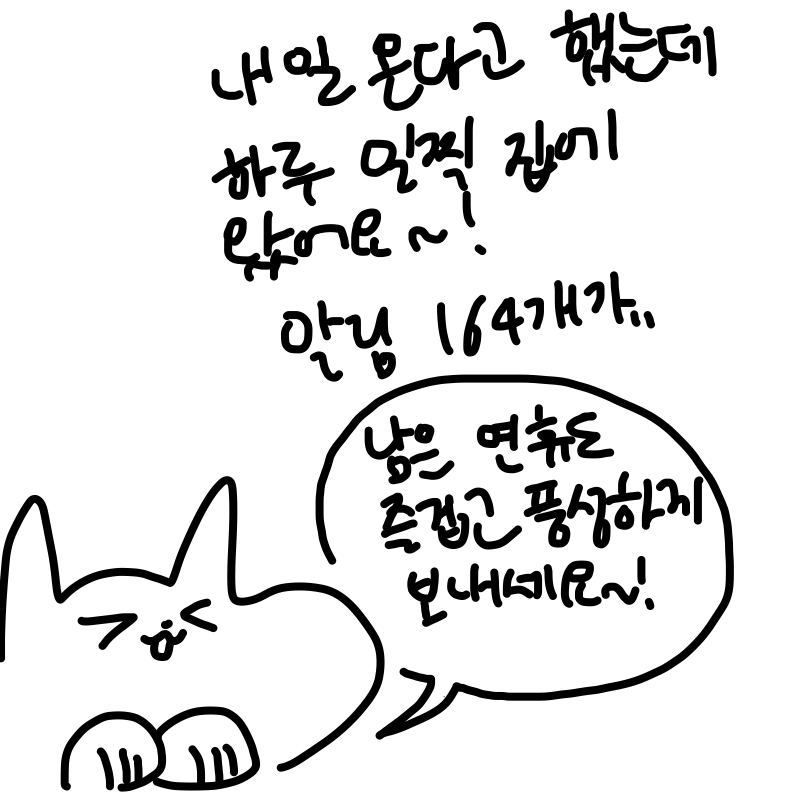 내일 온다고 했는데
하루 일찍 집에
왔어요~!
알림 164개가..
남은 연휴도
즐겁고 풍성하게
보내세요~!